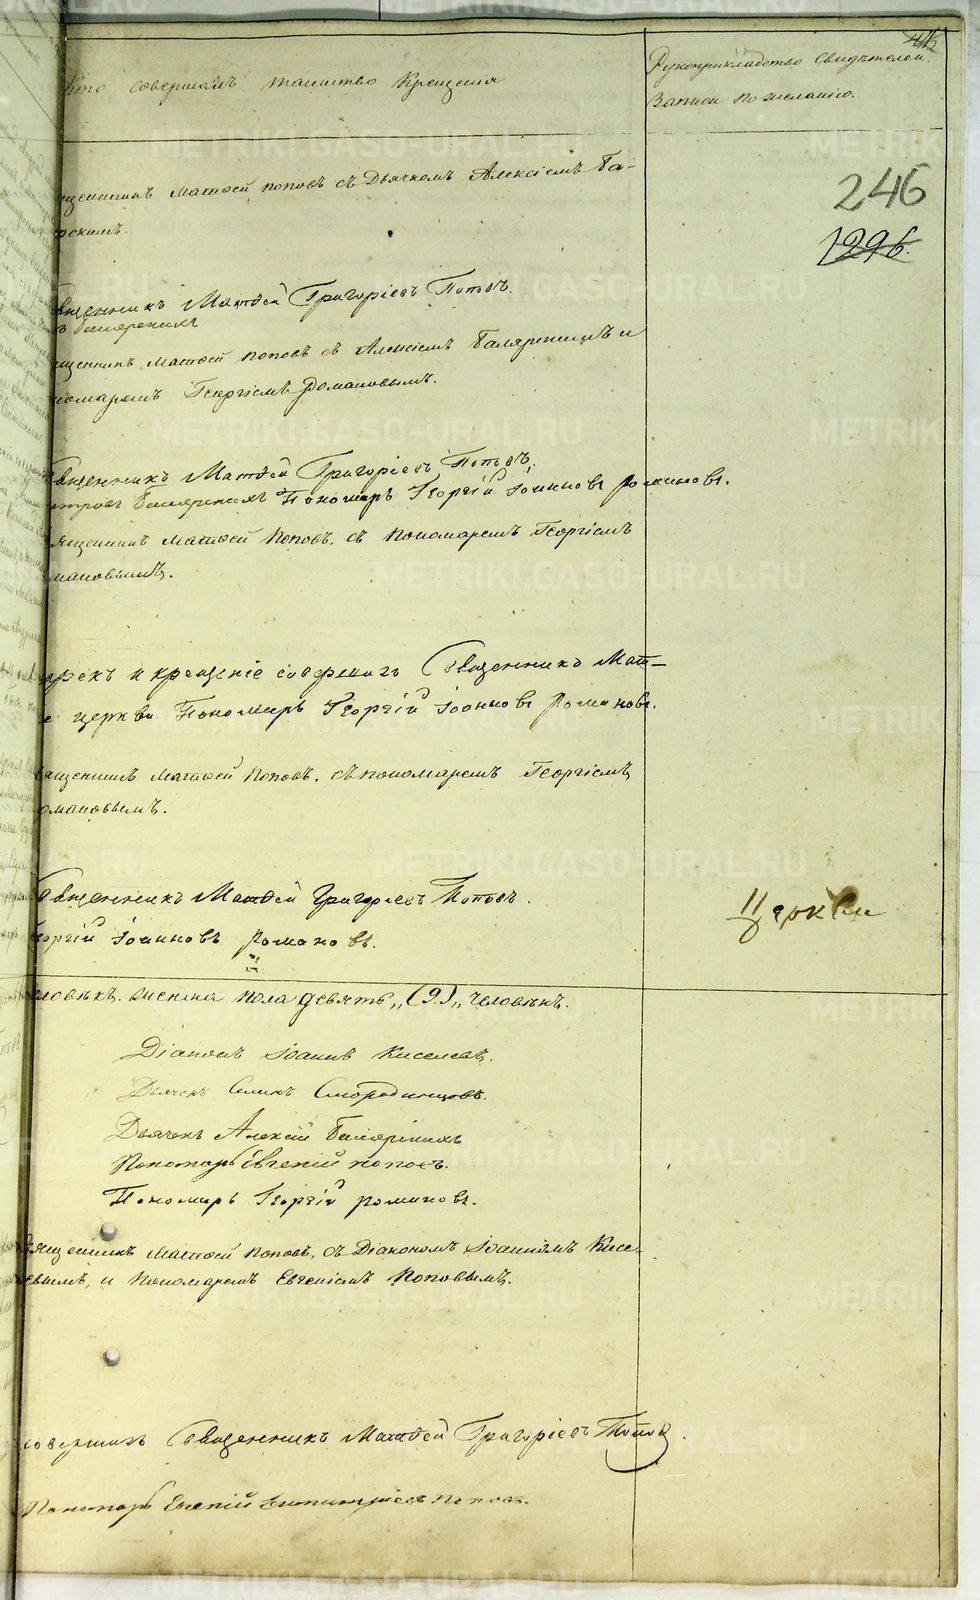 Кто совершалъ таинство Крещенія
Рукоприкладство Свидѣтелей.
Записи по желанію.
246
1296.
щенникъ Матѳей поповъ съ Дьячкомъ Алексіемъ Ба-
Священникъ Матѳей Григорьевъ Поповъ.
щенникъ Матѳей поповъ съ Алексіемъ Баляркинымъ и
номаремъ Георгіемъ Романовымъ.
Священникъ Матѳей Григоріевъ Поповъ.
Пономарь Георгій Іоанновъ Романовъ.
священникъ Матѳей Поповъ, съ пономаремъ Георгіемъ
мановымъ.
нарекъ и крещеніе совершилъ Священникъ Мат-
церкви Пономарь Георгій Іоанновъ Романовъ.
священникъ Матѳей Поповъ, съ пономаремъ Георгіемъ
омановымъ.
Священникъ Матѳей Григорьевъ Поповъ.
Церкви
еоргій Іоанновъ Романовъ.
еловѣкъ. женска пола девять „(9.)„ человѣкъ.
Діаконъ Іоаннъ Киселевъ.
Дьячекъ Смородинцовъ.
Дьячекъ Алексій
Пономарь Евгеній Поповъ.
Пономарь Георгій Романовъ.
священникъ Матѳей Поповъ, съ Діакономъ Іоанномъ Кисе-
евымъ, и Пономаремъ Евгеніемъ Поповымъ.
совершилъ Священникъ Матѳей Григоріевъ Поповъ.
Пономарь Евгеній Поповъ.
METRIKI.GASO-URAL.RU